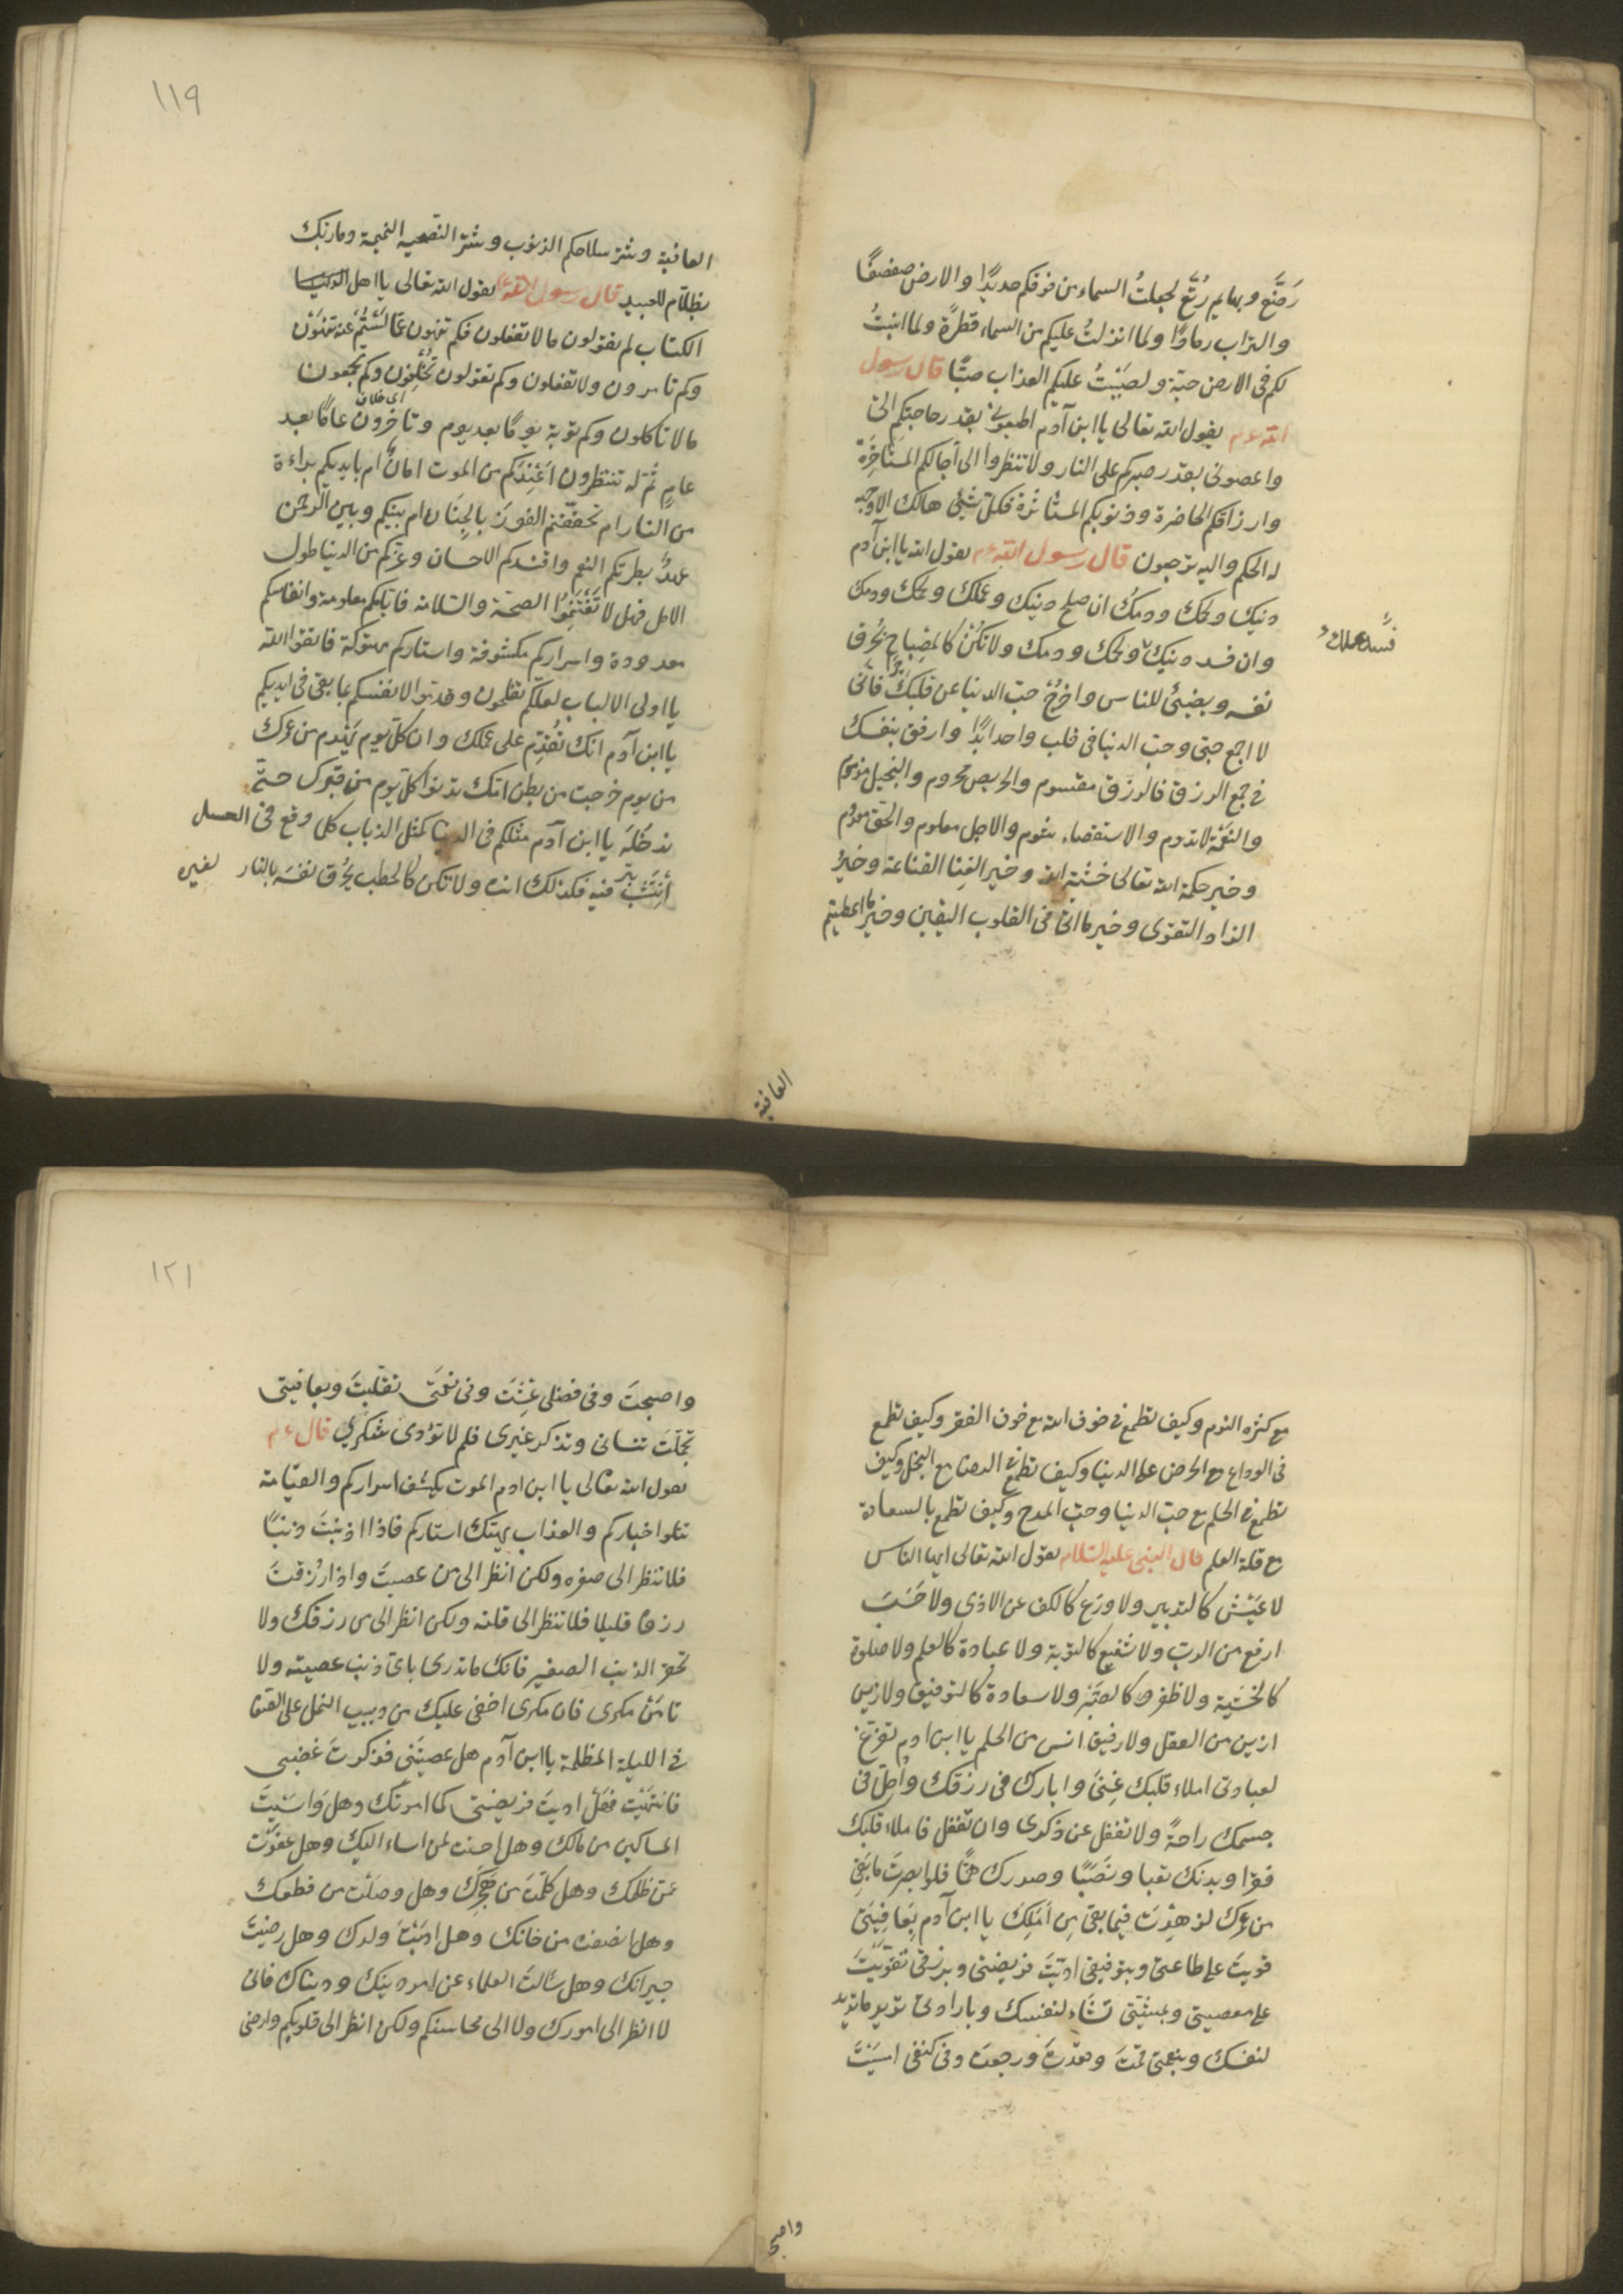 رَضَّع وبهايم رُتَّع لجعلتُ السماء من فوقكم حديدًا والارض صفصفًا
والتراب رمادًا ولما انزلتُ عليكم من السماء قطرةً ولما انبتُ
لكم فى الارض حبّة ولصَبَبْتُ عليكم العذاب صبًّا قال رسول
الله ءم يقول الله تعالى يا ابن آدم اطيعونى بقدر حاجتكم الىّ
واعصونى بقدر صبركم على النار ولا تنظروا الى آجالكم المستاخِرَة
وارزاقكم الحاضرة وذنوبكم المستاثرة فكلّ شئ هالك الا وجهه
له الحكم واليه ترجعون قال رسول الله ءم يقول الله يا ابن آدم
دينك ولحمك ودمك ان صلح دينك وعملك ولحمك ودمك
وان فسد دينك ولحمك ودمك ولا تكُنْ كالمِصْباح يَحُرق
فسد عملك و
نفسه ويضيئ للناس واخرُجْ حبّ الدنيا عن قلبك فانّى
لا اجمع حبّى وحبّ الدنيا فى قلب واحد ابدًا وارفق بنفسك
فى جمع الرزق فالرزق مقسوم والحريص محروم والبخيل مذموم
والنعمة لا تدوم والاستقصاء شوم والاجل معلوم والحقّ معلوم
وخير حكمة الله تعالى خشية الله وخير الغِنا القناعة وخيرُ
الزاد التقوى وخير ما القى فى القلوب اليقين وخير ما اعطيتم
العافية
١١٩
العافية وشرّ سلاحكم الذنوب وشرّ النصيحة النميمة وما ربّك
بظلّام للعبيد قال رسول الله ءم يقول الله تعالى يا اهل الدنيا
الكتاب لم يقولون ما لا تفعلون فكم تنهون عمّا لَسْتُمْ عنه تنهَوْن
وكم تامرون ولا تفعلون وكم تقولون تُخْلِفون وكم تجمعون
اى خلاف
ما لا تاكلون وكم توبة يومًا بعد يوم وتاخرون عامًا بعد
عامٍ ثمّ له تنتظرون اعَنِدَكم من الموت امانٌ ام بايديكم براءة
من النار ام تحقّقتم الفوزَ بالجِنَان ام بينكم وبين الرحمن
عهدٌ بطرتكم النعم وافسدكم الاحسان وغرّكم من الدنيا طول
الامل فهل لا تَغْتَنِمُوا الصحّة والسّلامة فايّامكم معلومة وانفاسكم
معدودة واسراركم مكشوفة واستاركم مهتوكة فاتقوا الله
يا اولى الالباب لعلّكم تفلحون وقدّموا لانفسكم بما بقى فى ايديكم
يا ابن آدم انّك تُقدِّم على عملك وان كلّ يوم يَهْدم من عمرك
من يوم خرجت من بطن امّك تدنوا كلّ يوم مِن قبرك حتّى
تدخُلَه يا ابن آدم مثلكم فى الدنيا كمثل الذباب كلما وقع فى العسل
أنتَشَبَ فيه فكذلك انت ولا تكن كالحطب يَحُرق نفسَه بالنار لغيره
مع كثرة النوم وكيف تطمع فى خوف الله مع خوف الفقر وكيف تطمع
فى الوداع مع الحرص على الدنيا وكيف تطمع فى الرضا مع البخل وكيف
تطمع فى الحلم مع حبّ الدنيا وحبّ المدح وكيف تطمع بالسعادة
مع قلة العلم قال النبى عليه السّلام يقول الله تعالى ايها الناس
لا عَيْش كالتدبير ولا ورَع كالكف عن الاذى ولا حَسَبَ
ارفع من الادب ولا شفيع كالتوبة ولا عبادة كالعلم ولا صلوة
كالخشية ولا ظفر كالصَبْر ولا سعادة كالتوفيق ولا زين
ازين من العقل ولا رفيق انس من الحلم يا ابن ادم تفرّغ
لعبادتى املاء قلبك غِنىً وابارك فى رزقك واُحِلّ فى
جسمك راحةً ولا تغفل عن ذكرى وان تغفل فاملاء قلبك
فقرًا وبدنك تعبا ونَصَبًا وصدرك همًّا فلو ابصرتَ ما بَقِىَ
من عُمرك لزهِدْتَ فيما بقى مِن امَلِك يا ابن آدم بِعافِيَتى
قويتَ على طاعتى وبتوفيقى ادّيْتَ فريضتى وبرزقى تقوّيْتَ
على معصيتى وبمشيّتى تشاء لنفسك وبارادتى تريد ما تريد
لنفسك وبنعمتى قمتَ وقعدْتَ ورجعتَ وفى كنفى امسَيْتَ
واصبحـ
١٢١
واصبحتَ وفى فضلى عِشْتَ وفى نعمتى تقلّبتَ وبعافيتى
تجمّلتَ تنسانى وتذكر غيرى فلم لا تؤدّى شكرى قال ءم
يقول الله تعالى يا ابن ادم الموت يكشف اسراركم والقيامة
تتلوا خباركم والعذاب يهتك استاركم فاذا اذنبتَ ذنبًا
فلا تنظر الى صغره ولكن انظر الى من عصيتَ واذا رُزقتَ
رزقا قليلا فلا تنظر الى قلته ولكن انظر الى من رزقك ولا
تحقر الذنب الصغير فانك ما تدرى باىّ ذنب عصيته ولا
تامَنْ مكرى فان مكرى اخفى عليك من دبيب النمل على الصّفا
فى الليلة المظلمة يا ابن آدم هل عصيتَنى فذكرتَ غضبى
فانتهَيْتَ فهل ادّيتَ فريضتى كما امرتك وهل وَاسَيْتَ
المساكين من مالك وهل احسنت لمن اساء اليك وهل عفَوْتَ
عمّن ظلمك وهل كلّمتَ من هَجَرَك وهل وصلْت من قطعك
وهل انصفت من خانك وهل ادّبْتَ ولدك وهل رضيْتَ
جيرانك وهل سَألتَ العلماء عن امر دينك ودنياك فانّى
لا انظر الى صورك ولا الى محاسنكم ولكن انظر الى قلوبكم وارضى